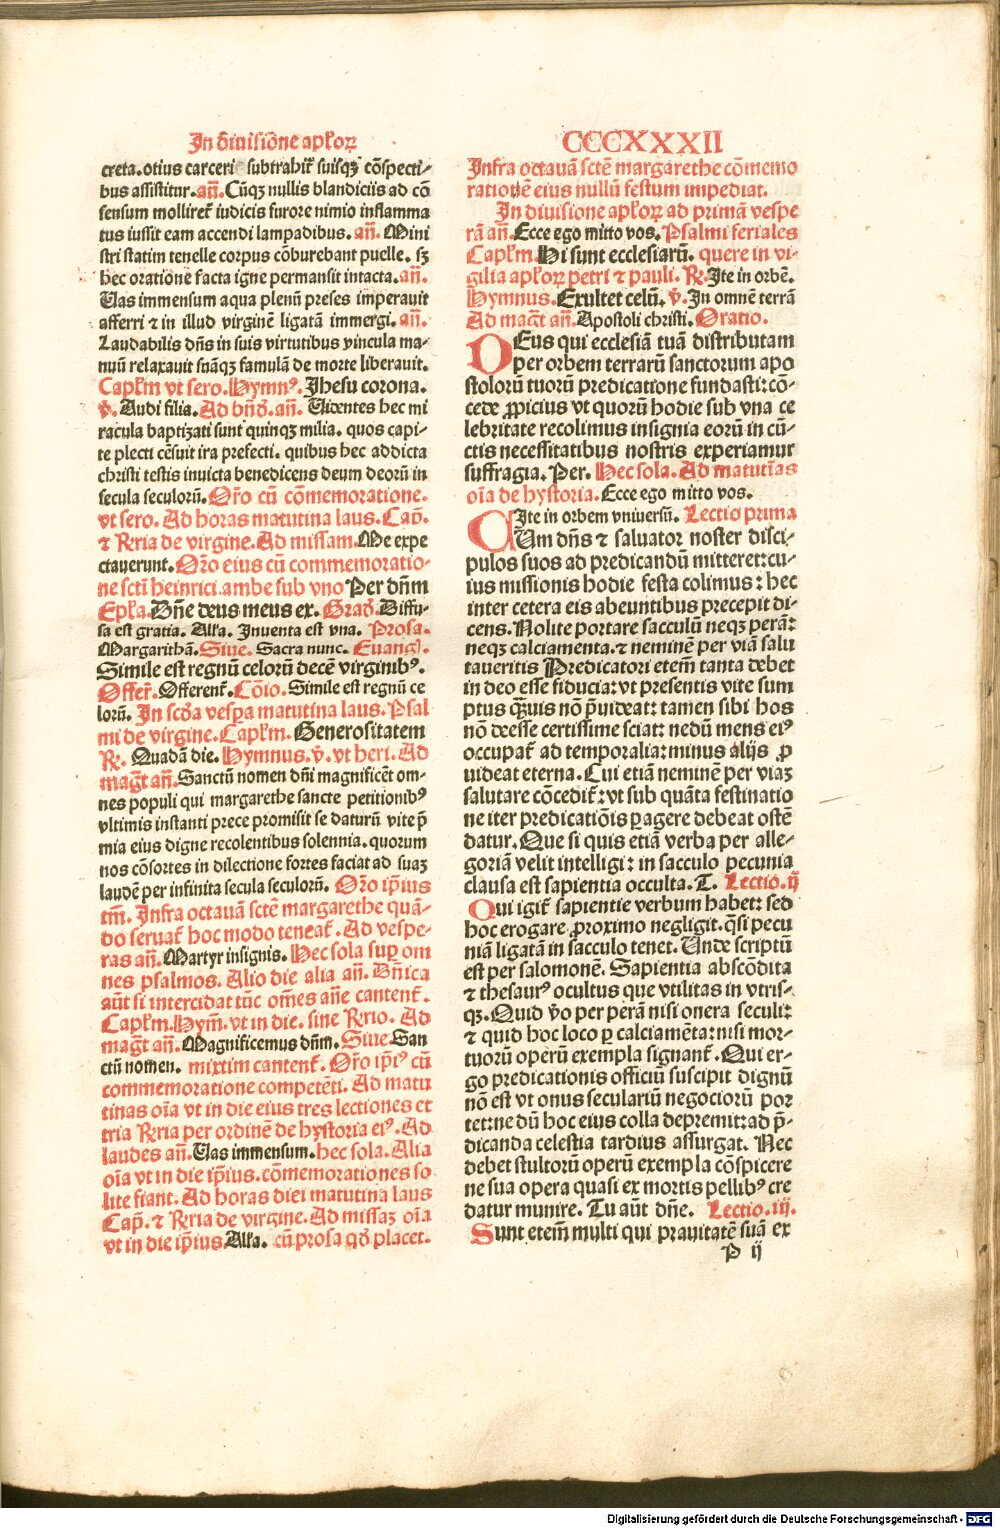 In diuisiõne apl'oꝝ
CCCXXXII
creta. otius carceri subtrahit᷑ suisqꝫ cõspecti-
bus assistitur. añ. Cũqꝫ nullis blandiciis ad cõ
sensum molliret᷑ iudicis furore nimio inflamma
tus iussit eam accendi lampadibus. añ. Mini
stri statim tenelle corpus cõburebant puelle. sꝫ
hec oratione facta igne permansit intacta. añ.
Uas immensum aqua plenũ preses imperauit
afferri ⁊ in illud virginẽ ligatã immergi. añ.
Laudabilis dñs in suis virtutibus vincula ma-
nuũ relaxauit suãqꝫ famulã de morte liberauit.
Capl'm vt sero. Hymnꝰ. Jhesu corona.
v̾. Audi filia. Ad bñd̾. añ. Uidentes hec mi
racula baptizati sunt quinqꝫ milia. quos capi-
te plecti cẽsuit ira prefecti. quibus hec addicta
christi testis inuicta benedicens deum deorũ in
secula seculorũ. Or̃o cũ cõmemoratione.
vt sero. Ad horas matutina laus. Cap̃.
⁊ R̃ria de virgine. Ad missam. Me expe
ctauerunt. Or̃o eius cũ commemoratio-
ne sctĩ heinrici. ambe sub vno Per dñm
Epl'a. Dñe deus meus ex. Grad̾. Diffu-
sa est gratia. All'a. Inuenta est vna. Prosa.
Margarithã. Siue. Sacra nunc. Euangl.
Simile est regnũ celorũ decẽ virginibꝰ.
Offer̃. Offerent᷑. Cõio. Simile est regnũ ce
lorũ. In scd̾a vesꝑa matutina laus. Psal
mi de virgine. Capl'm. Generositatem
R̃. Quadã die. Hymnus. v̾. vt heri. Ad
mag̃t añ. Sanctũ nomen dñi magnificẽt om-
nes populi qui margarethe sancte petitionibꝰ
vltimis instanti prece promisit se daturũ vite p̃
mia eius digne recolentibus solennia. quorum
nos cõsortes in dilectione fortes faciat ad suaꝫ
laudẽ per infinita secula seculorũ. Or̃o ip̃ius
tm̃. Infra octauã sctẽ margarethe quã-
do seruat᷑ hoc modo teneat᷑. Ad vespe-
ras añ. Martyr insignis. Hec sola suꝑ om
nes psalmos. Alio die alia añ. Dñica
aũt si intercidat tũc om̃es añe cantent᷑.
Capl'm. Hym̃. vt in die. sine R̃rio. Ad
mag̃t añ. Magnificemus dñm. Siue San
ctũ nomen. mixtim cantent᷑. Or̃o ip̃iꝰ cũ
commemoratione competẽti. Ad matu
tinas oĩa vt in die eius tres lectiones et
tria R̃ria per ordinẽ de hystoria eiꝰ. Ad
laudes añ. Uas immensum. hec sola. Alia
oĩa vt in die ip̃ius. cõmemorationes so
lite fiant. Ad horas diei matutina laus
Cap̃. ⁊ R̃ria de virgine. Ad missaꝫ oĩa
vt in die ip̃ius. All'a. cũ prosa qd̾ placet.
Infra octauã sctẽ margarethe cõmemo
rationẽ eius nullũ festum impediat.
In diuisione apl'oꝝ ad primã vespe
rã añ. Ecce ego mitto vos. Psalmi feriales
Capl'm. Hi sunt ecclesiarũ. quere in vi-
gilia apl'oꝝ petri ⁊ pauli. R̃. Ite in orbẽ.
Hymnus. Exultet celũ. v̾. In omnẽ terrã
Ad mag̃t añ. Apostoli christi. Oratio.
DEus qui ecclesiã tuã distributam
per orbem terrarũ sanctorum apo
stolorũ tuorũ predicatione fundasti: cõ-
cede ꝓpicius vt quorũ hodie sub vna ce
lebritate recolimus insignia eorũ in cũ-
ctis necessitatibus nostris experiamur
suffragia. Per. Hec sola. Ad matutĩas
oĩa de hystoria. Ecce ego mitto vos.
Ite in orbem vniuersũ. Lectio prima
CUm dñs ⁊ saluator noster disci-
pulos suos ad predicandũ mitteret: cu-
ius missionis hodie festa colimus: hec
inter cetera eis abeuntibus precepit di-
cens. Nolite portare sacculũ neqꝫ perã:
neqꝫ calciamenta. ⁊ neminẽ per viã salu
taueritis Predicatori eteni᷑ tanta debet
in deo esse fiducia: vt presentis vite sum
ptus quãuis nõ p̃uideat: tamen sibi hos
nõ deesse certissime sciat: nedũ mens eiꝰ
occupat᷑ ad temporalia: minus alijs ꝓ
uideat eterna. Cui etiã neminẽ per viaꝫ
salutare cõcedit᷑: vt sub quãta festinatio
ne iter predicatiõis ꝑagere debeat ostẽ-
datur. Que si quis etiã verba per alle-
goriã velit intelligi: in sacculo pecunia
clausa est sapientia occulta. T. Lectio. ij
Qui igit᷑ sapientie verbum habet: sed
hoc erogare ꝓximo negligit. q̃si pecu
niã ligatã in sacculo tenet. Unde scriptũ
est per salomonẽ. Sapientia abscõdita
⁊ thesaurꝰ ocultus que vtilitas in vtris-
qꝫ. Quid v̾o per perã nisi onera seculi:
⁊ quid hoc loco ꝑ calciamẽta: nisi mor-
tuorũ operũ exempla signant᷑. Qui er-
go predicationis officiũ suscipit dignũ
nõ est vt onus seculariũ negociorũ por
tet: ne dũ hoc eius colla depremit: ad p̃-
dicanda celestia tardius assurgat. Nec
debet stultorũ operũ exempla cõspicere
ne sua opera quasi ex mortis pellibꝰ cre
datur munire. Tu aũt dñe. Lectio. iij.
Sunt eteni᷑ multi qui prauitatẽ suã ex
P ij
Digitalisierung gefördert durch die Deutsche Forschungsgemeinschaft - DFG